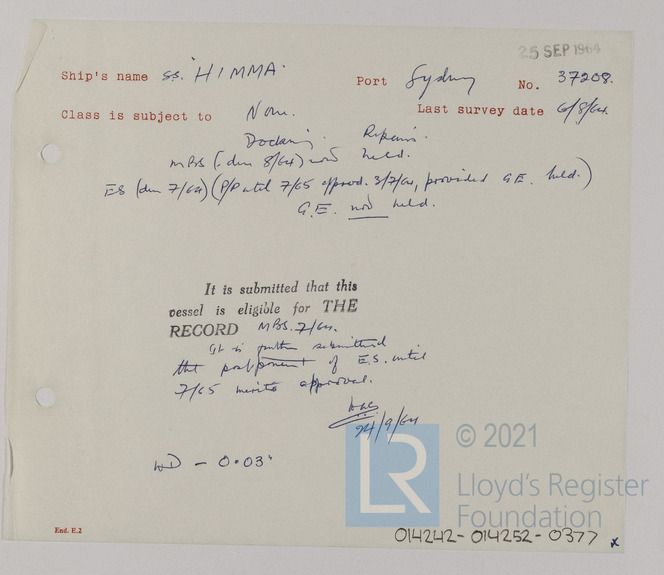 25 SEP 1964
Ship's name ss. "HIMMA" Port Sydney No. 37208.
Class is subject to None. Last survey date 6/8/64.
Docking. Repairs.
MBS (due 8/64) now held.
ES (due 7/64) (P/P until 7/65 approved. 3/7/64, provided G.E. held.)
G.E. now held.
It is submitted that this
vessel is eligible for THE
RECORD MBS. 7/64.
It is further submitted
the postponement of E.S. until
7/65 merits approval.
24/9/64
WD - 0.03"
© 2021
LR
Lloyd's Register
Foundation
End. E.2
014242-014252-0377 x